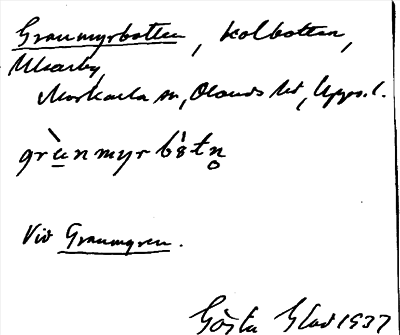 Granmyrbotten, kolbotten,
Ukarby,
Morkarla sn, Olands hd, Upps. l.
grànmyrbòtn̥
Vid Granmyren.
Gösta Glad 1937